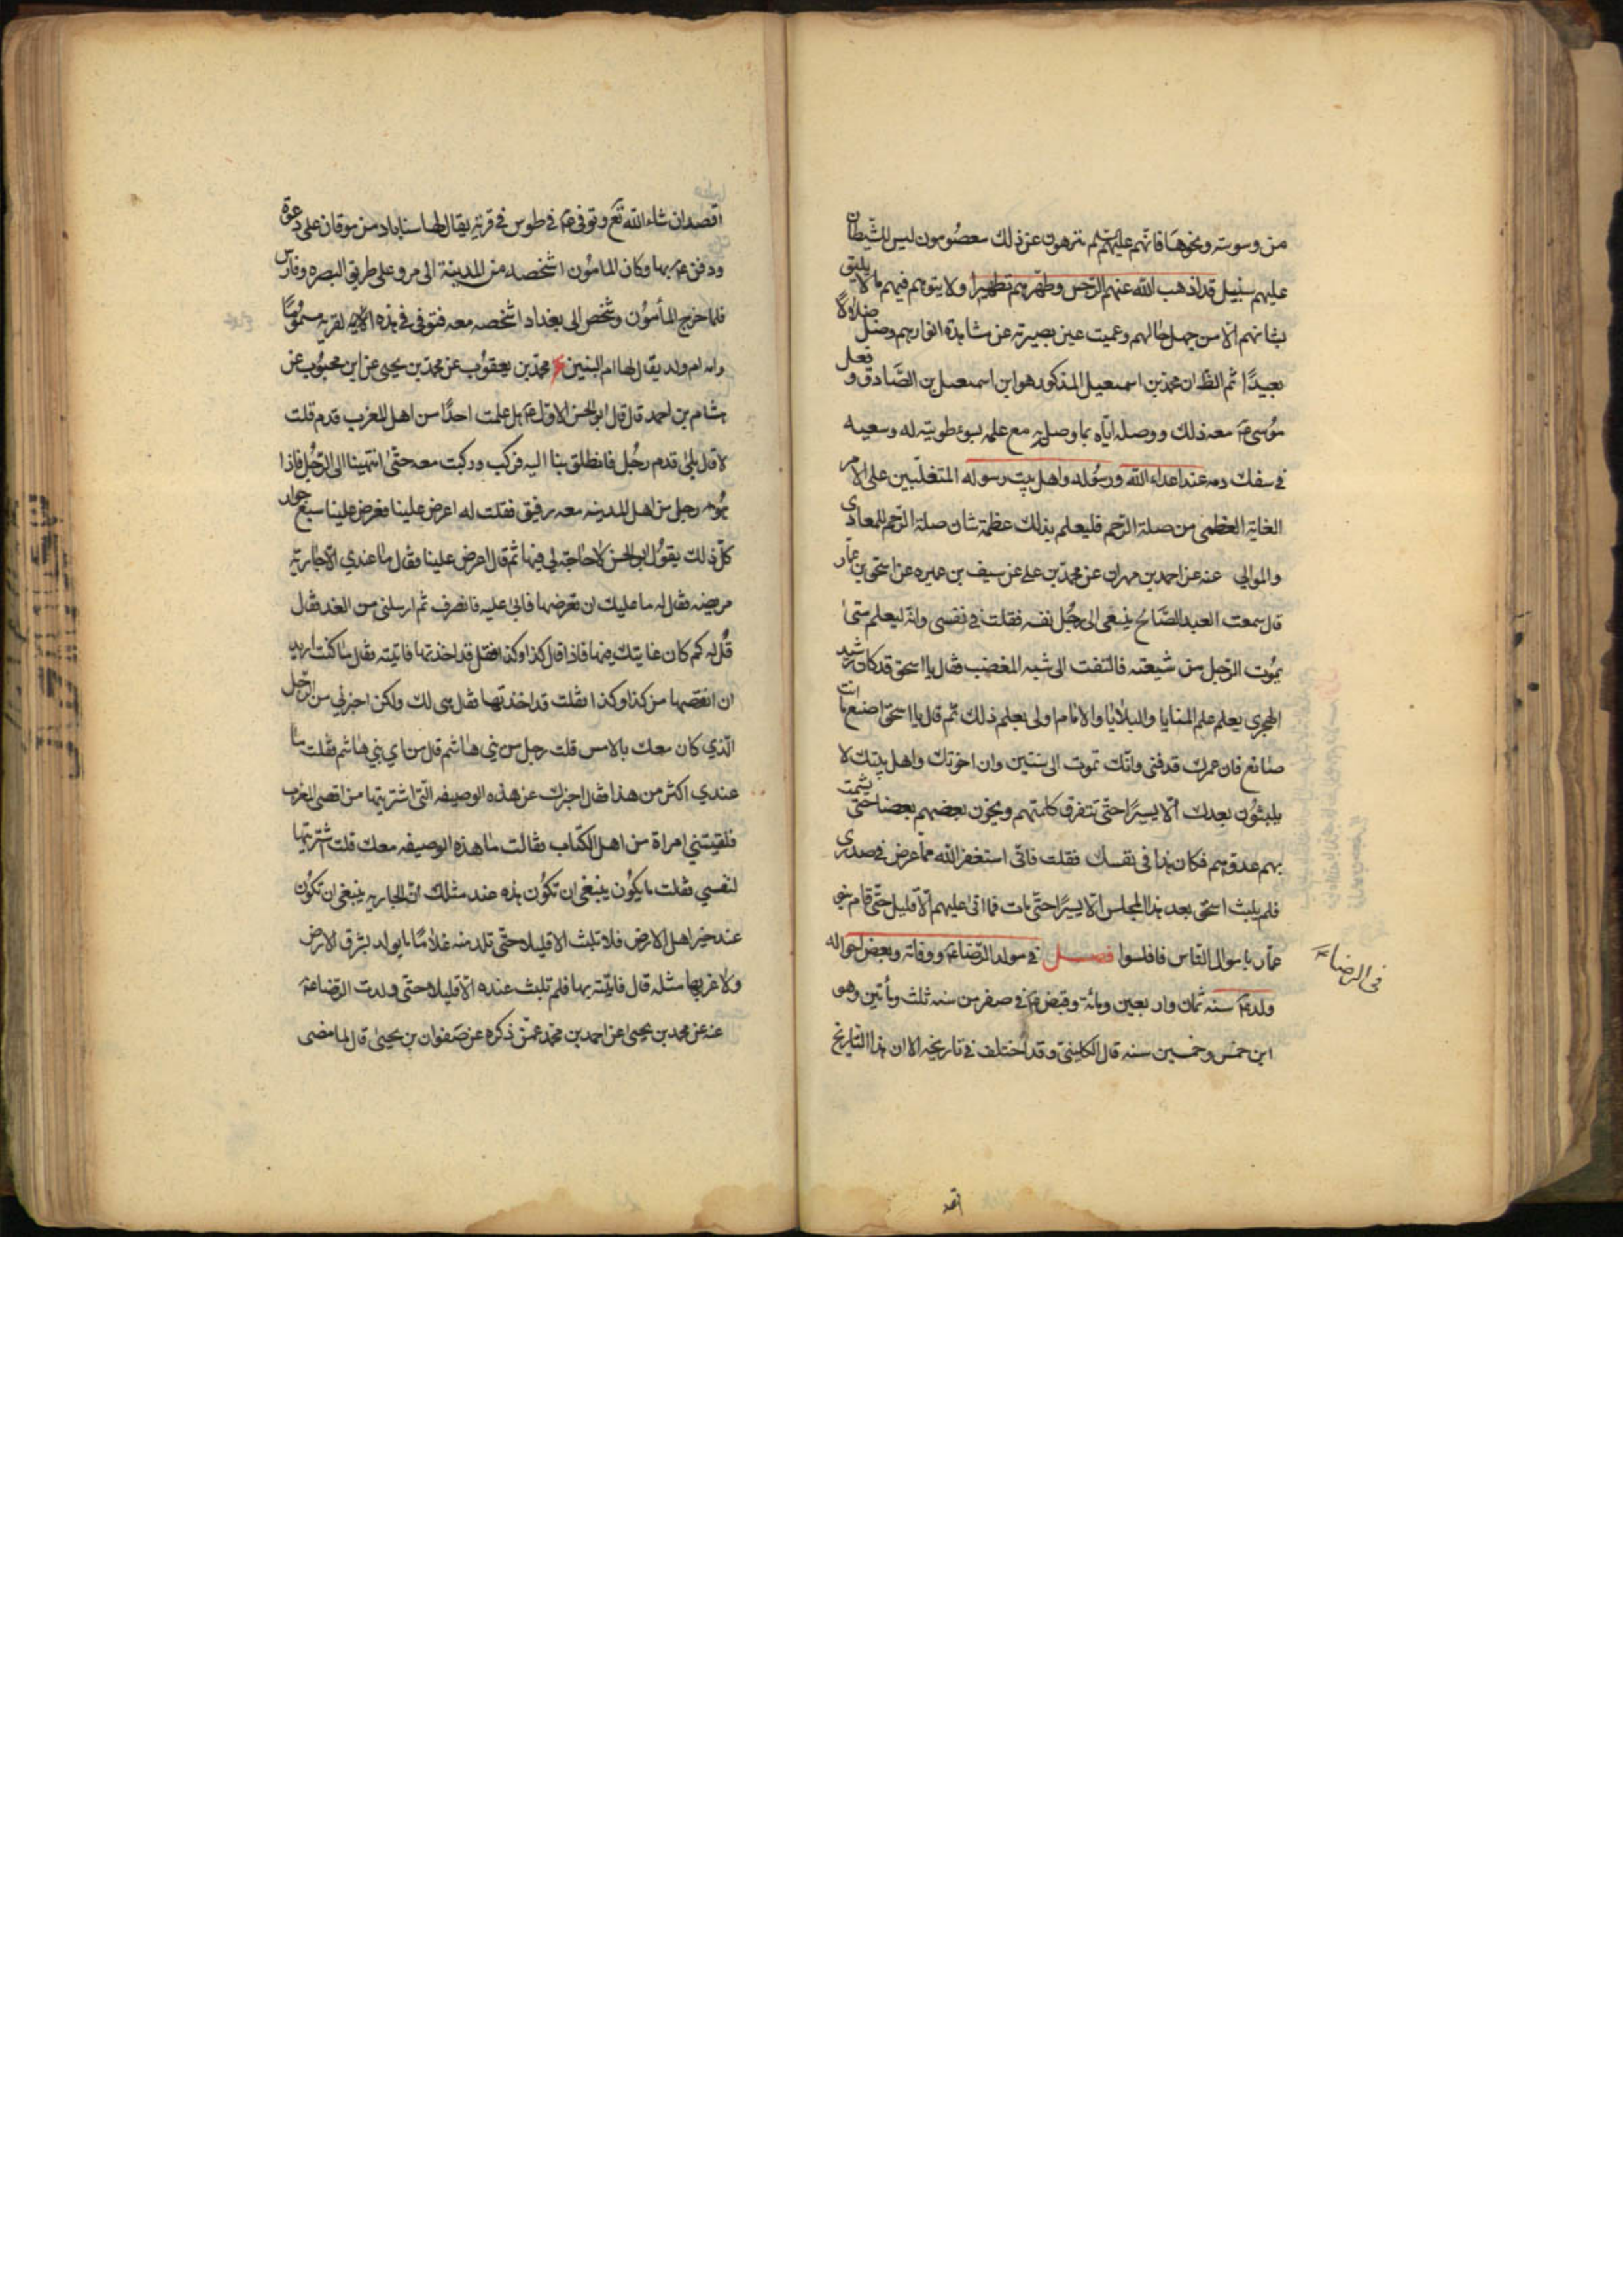 من وسوسته ونحوها فانهم عليهم السلم منزهون عن ذلك معصومون ليس للشيطان
عليهم سبيل قد اذهب الله عنهم الرجس وطهرهم تطهيرا ولا يتوهم فيهم ما لا يليق
بشانهم الا من جهل حالهم وعميت عين بصيرته عن مشاهدة انوارهم وضل ضلالاً
بعيدًا ثم الظ ان محمد بن اسمعيل المذكور هو ابن اسمعيل بن الصادق و فعل
موسى معه ذلك ووصله اياه بما وصل به مع علمه بسوء طويته له وسعيه
في سفك دمه عند اعداء الله ورسوله واهل بيت رسوله المتغلبين على الامر
الغاية العظمى من صلة الرحم فليعلم بذلك عظمة شان صلة الرحم للمعادى
والموالي عنه عن احمد بن مهران عن محمد بن علي عن سيف بن عميره عن اسحق بن عمار
قال سمعت العبد الصالح ينعى الى رجل نفسه فقلت في نفسي وانه ليعلم متى
يموت الرجل من شيعته فالتفت الى شبه المغضب فقال يا اسحق قد كان رشيد
الهجرى يعلم علم المنايا والبلايا والامام اولى بعلم ذلك ثم قال يا اسحق اصنع ما انت
صانع فان عمرك قد فنى وانك تموت الى سنتين وان اخوتك واهل بيتك لا
يلبثون بعدك الا يسيرًا حتى تتفرق كلمتهم ويخون بعضهم بعضا حتى يشمت
بهم عدوهم فكان هذا في نفسك فقلت فانى استغفر الله مما عرض في صدرى
فلم يلبث اسحق بعد هذا المجلس الا يسيرًا حتى مات فما اتى عليهم الا قليل حتى قام بنو
عمار باموال الناس فافلسوا فصل في مولد الرضا ع ووفاته وبعض احواله
ولد ع سنه ثمان واربعين ومائة وقبض ع في صفر من سنه ثلث ومأتين وهو
ابن خمس وخمسين سنه قال الكلينى وقد اختلف في تاريخه الا ان هذا التاريخ
فى الرضا ع
اقصد
اقصد ان شاء الله تع وتوفى ع في طوس في قرية يقال لها سناباد من نوقان على دعوة
ودفن ع بها وكان المامون اشخصه من المدينة الى مرو على طريق البصره وفارس
فلما خرج المأمون وشخص الى بغداد اشخصه معه فتوفى في هذه القريه مسمومًا
وامه ام ولد يقال لها ام البنين محمد بن يعقوب عن محمد بن يحيى عن ابن محبوب عن
هشام بن احمد قال قال ابو الحسن الاول ع هل علمت احدًا من اهل المغرب قدم قلت
لا قال بلى قدم رجل فانطلق بنا اليه فركب وركبت معه حتى انتهينا الى الرجل فاذا
هو رجل من اهل المدينه معه رقيق فقلت له اعرض علينا فعرض علينا سبع جوار
كل ذلك يقول ابو الحسن لا حاجة لى فيها ثم قال اعرض علينا فقال ما عندي الا جارية
مريضه فقال له ما عليك ان تعرضها فابى عليه فانصرف ثم ارسلنى من الغد فقال
قل له كم كان غايتك فيها فاذا قال كذا وكذا فقل قد اخذتها فاتيته فقال ما كنت اريد
ان انقصها من كذا وكذا فقلت قد اخذتها فقال هى لك ولكن اخبرني من الرجل
الذي كان معك بالامس قلت رجل من بني هاشم قال من اي بني هاشم فقلت ما
عندي اكثر من هذا فقال اخبرك عن هذه الوصيفه التى اشتريتها من اقصى المغرب
فلقيتني امراة من اهل الكتاب فقالت ما هذه الوصيفه معك قلت اشتريتها
لنفسي فقلت ما يكون ينبغي ان تكون هذه عند مثلك ان الجاريه ينبغي ان تكون
عند خير اهل الارض فلا تلبث الا قليلا حتى تلد منه غلامًا ما يولد بشرق الارض
ولا غربها مثله قال فاتيته بها فلم تلبث عنده الا قليلا حتى ولدت الرضا ع
عنه عن محمد بن يحيى عن احمد بن محمد عمن ذكره عن صفوان بن يحيى قال لما مضى